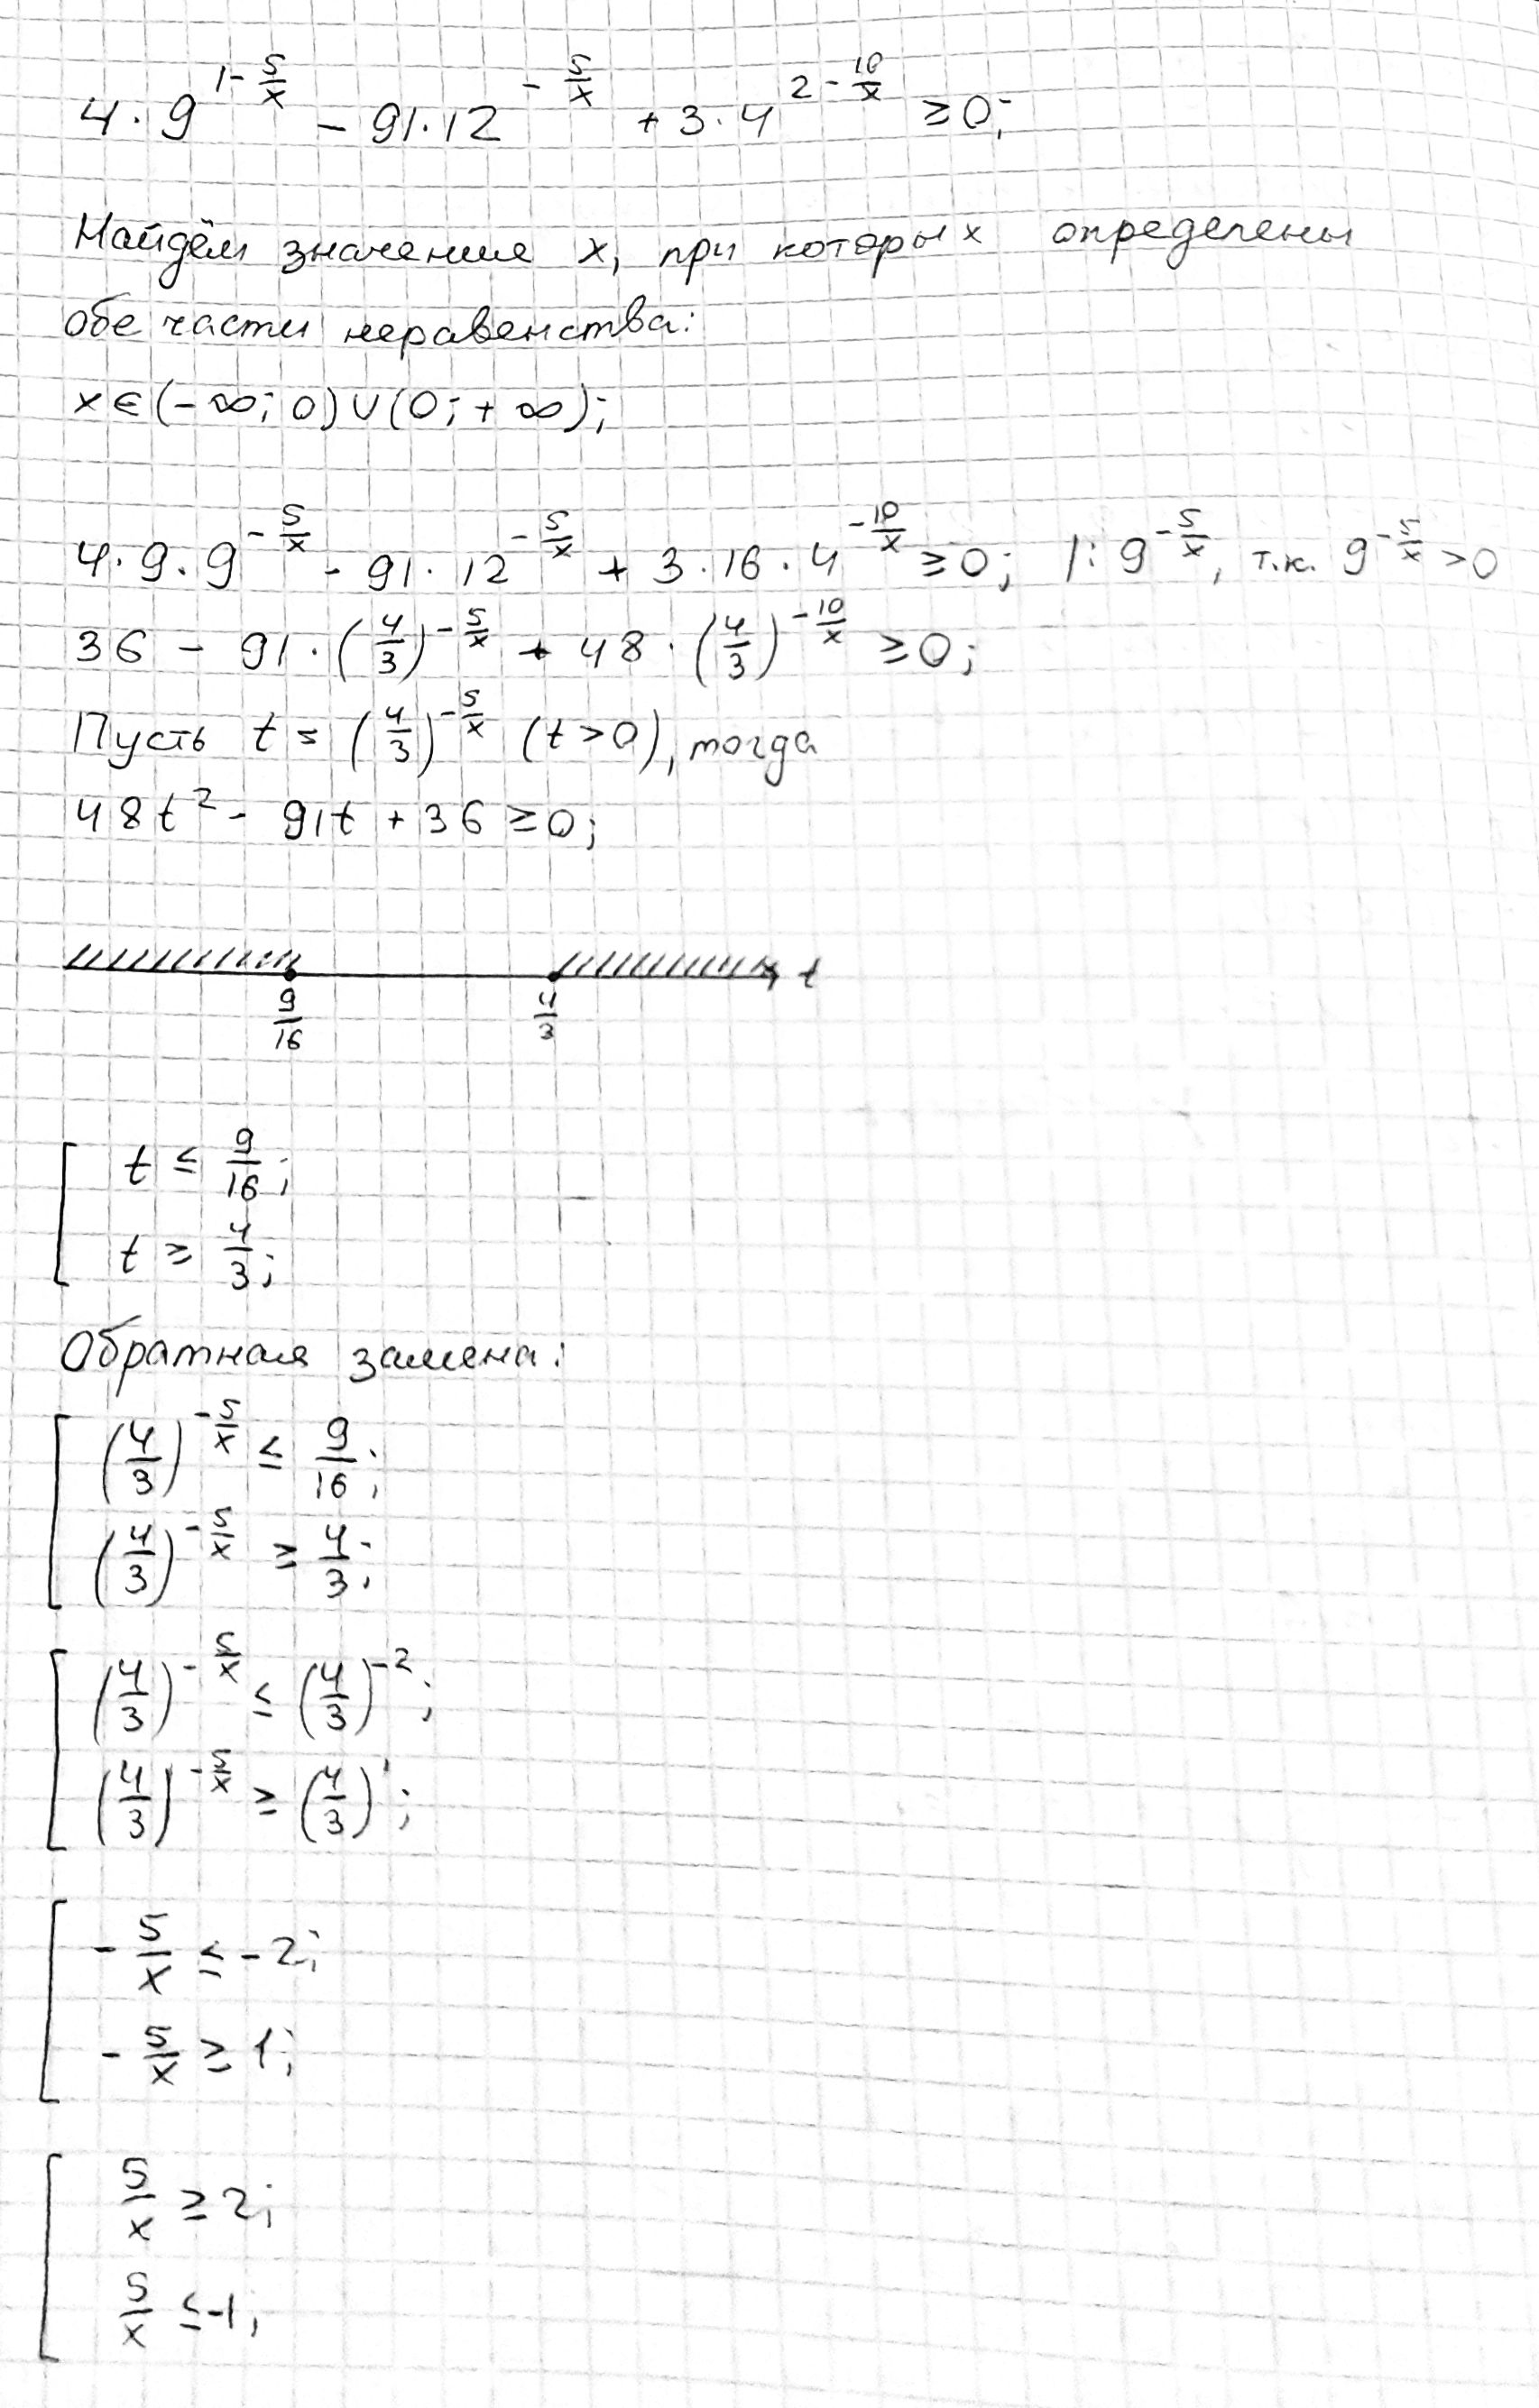 4 · 9^{1 - \frac{5}{x}} - 91 · 12^{-\frac{5}{x}} + 3 · 4^{2 - \frac{10}{x}} ≥ 0;
Найдём значения x, при которых определены
обе части неравенства:
x ∈ (-∞; 0) ∪ (0; +∞);
4 · 9 · 9^{-\frac{5}{x}} - 91 · 12^{-\frac{5}{x}} + 3 · 16 · 4^{-\frac{10}{x}} ≥ 0; |: 9^{-\frac{5}{x}}, т.к. 9^{-\frac{5}{x}} > 0
36 - 91 · (\frac{4}{3})^{-\frac{5}{x}} + 48 · (\frac{4}{3})^{-\frac{10}{x}} ≥ 0;
Пусть t = (\frac{4}{3})^{-\frac{5}{x}} (t > 0), тогда
48t² - 91t + 36 ≥ 0;
t
\frac{9}{16} \frac{4}{3}
t ≤ \frac{9}{16};
t ≥ \frac{4}{3};
Обратная замена:
(\frac{4}{3})^{-\frac{5}{x}} ≤ \frac{9}{16};
(\frac{4}{3})^{-\frac{5}{x}} ≥ \frac{4}{3};
(\frac{4}{3})^{-\frac{5}{x}} ≤ (\frac{4}{3})^{-2};
(\frac{4}{3})^{-\frac{5}{x}} ≥ (\frac{4}{3})^{1};
-\frac{5}{x} ≤ -2;
-\frac{5}{x} ≥ 1;
\frac{5}{x} ≥ 2;
\frac{5}{x} ≤ -1;